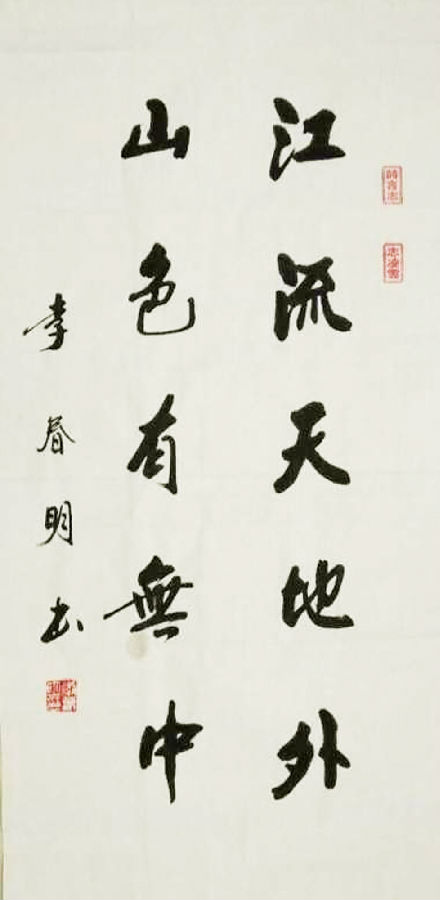 江流天地外
山色有無中
李春明书